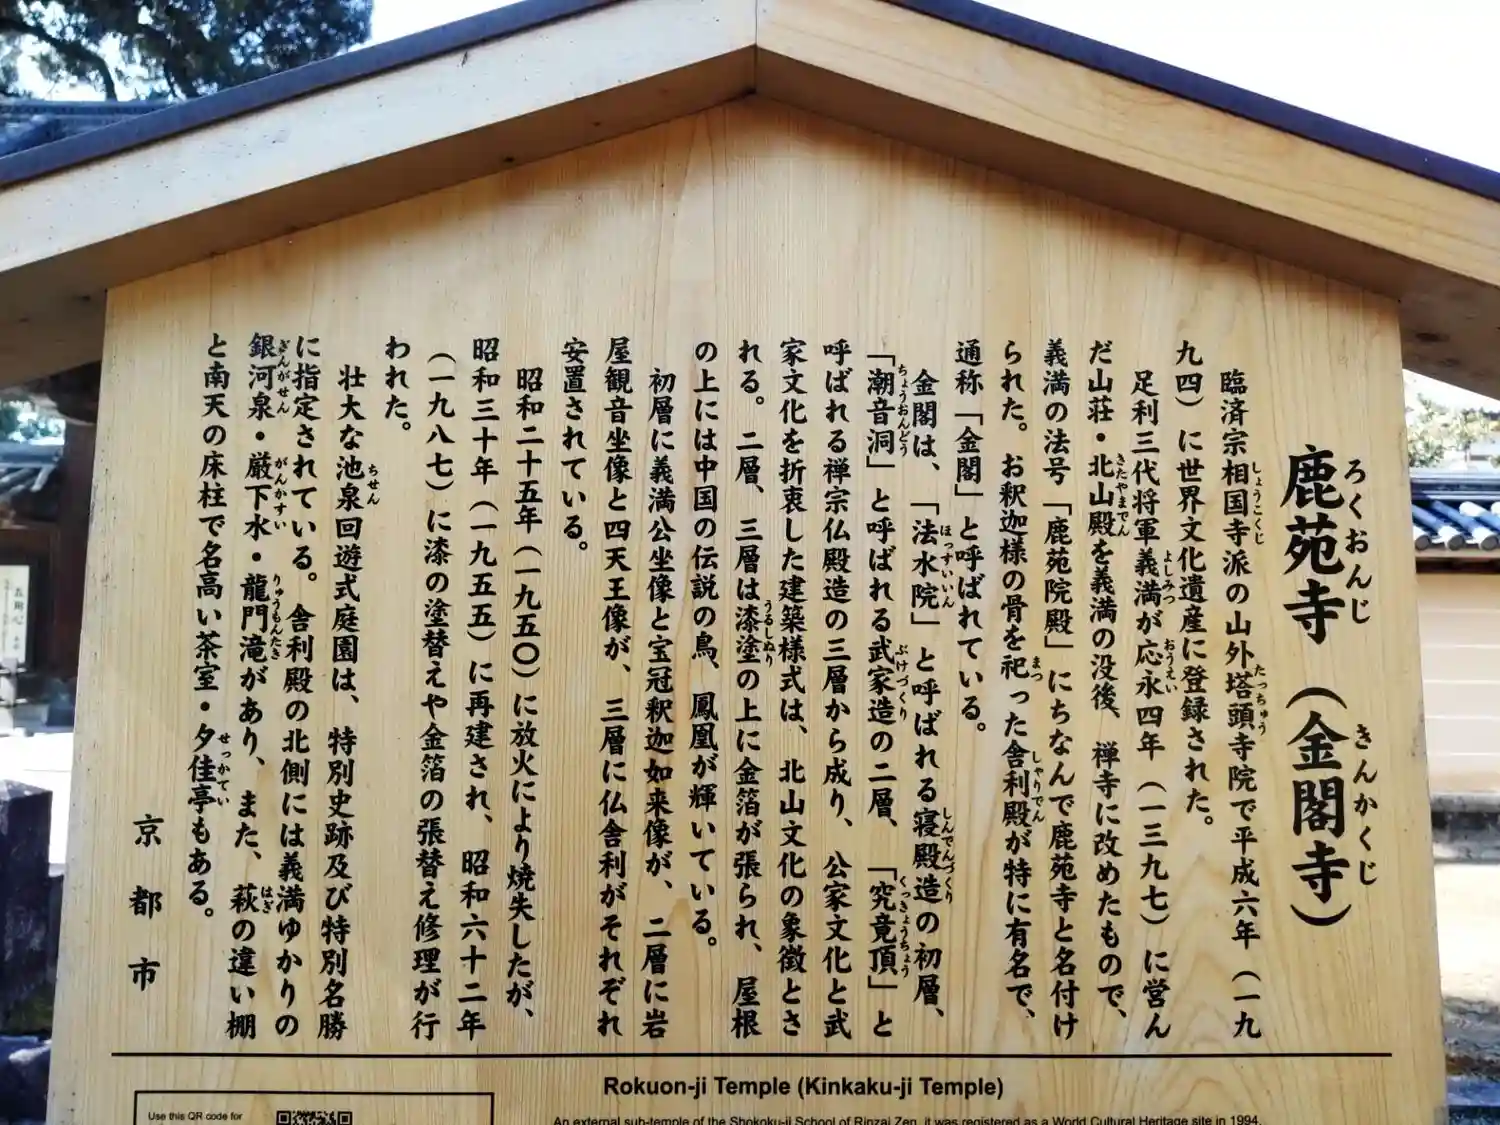 鹿苑寺（金閣寺）
ろくおんじ
きんかくじ
臨済宗相国寺派の山外塔頭寺院で平成六年（一九
しょうこくじ
たっちゅう
九四）に世界文化遺産に登録された。
足利三代将軍義満が応永四年（一三九七）に営ん
よしみつ
おうえい
だ山荘・北山殿を義満の没後、禅寺に改めたもので、
きたやまでん
義満の法号「鹿苑院殿」にちなんで鹿苑寺と名付け
られた。お釈迦様の骨を祀った舎利殿が特に有名で、
まつ
しゃりでん
通称「金閣」と呼ばれている。
金閣は、「法水院」と呼ばれる寝殿造の初層、
ほっすいいん
しんでんづくり
「潮音洞」と呼ばれる武家造の二層、「究竟頂」と
ちょうおんどう
ぶけづくり
くっきょうちょう
呼ばれる禅宗仏殿造の三層から成り、公家文化と武
家文化を折衷した建築様式は、北山文化の象徴とさ
れる。二層、三層は漆塗の上に金箔が張られ、屋根
うるしぬり
の上には中国の伝説の鳥、鳳凰が輝いている。
初層に義満公坐像と宝冠釈迦如来像が、二層に岩
屋観音坐像と四天王像が、三層に仏舎利がそれぞれ
安置されている。
昭和二十五年（一九五〇）に放火により焼失したが、
昭和三十年（一九五五）に再建され、昭和六十二年
（一九八七）に漆の塗替えや金箔の張替え修理が行
われた。
壮大な池泉回遊式庭園は、特別史跡及び特別名勝
ちせん
に指定されている。舎利殿の北側には義満ゆかりの
銀河泉・巌下水・龍門滝があり、また、萩の違い棚
ぎんがせん
がんかすい
りゅうもんたき
はぎ
と南天の床柱で名高い茶室・夕佳亭もある。
せっかてい
京都市
Rokuon-ji Temple (Kinkaku-ji Temple)
Use this QR code for
An external sub-temple of the Shokoku-ji School of Rinzai Zen, it was registered as a World Cultural Heritage site in 1994.